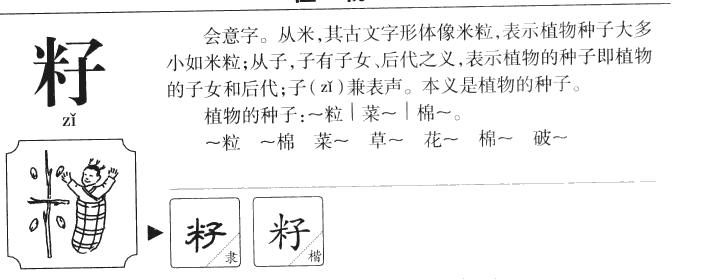 籽
zǐ
会意字。从米,其古文字形体像米粒,表示植物种子大多
小如米粒;从子,子有子女、后代之义,表示植物的种子即植物
的子女和后代;子(zǐ)兼表声。本义是植物的种子。
植物的种子:～粒｜菜～｜棉～。
～粒 ～棉 菜～ 草～ 花～ 棉～ 破～
籽 隶
籽 楷